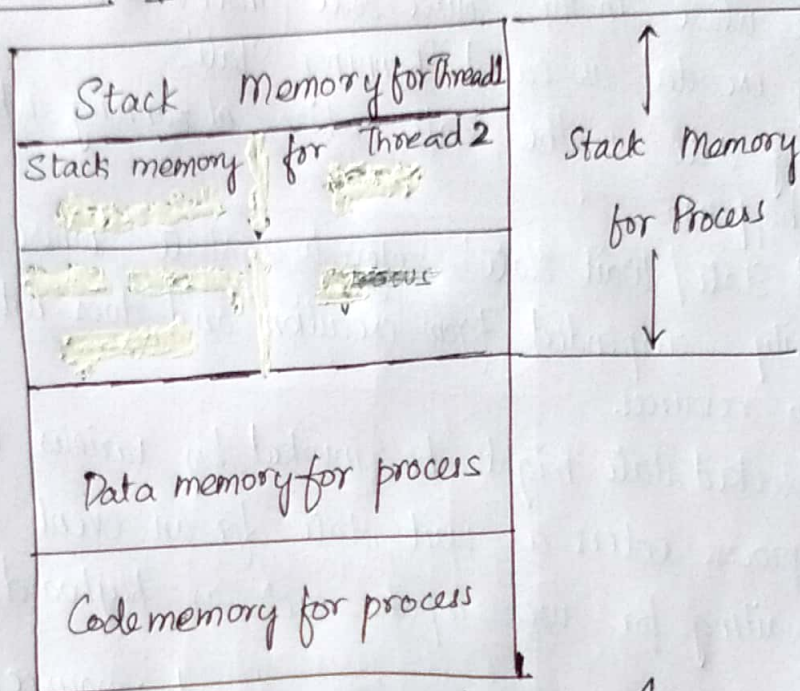 Stack Memory for Thread1
Stack memory for Thread 2
Stack Memory
for Process
Data memory for process
Code memory for process